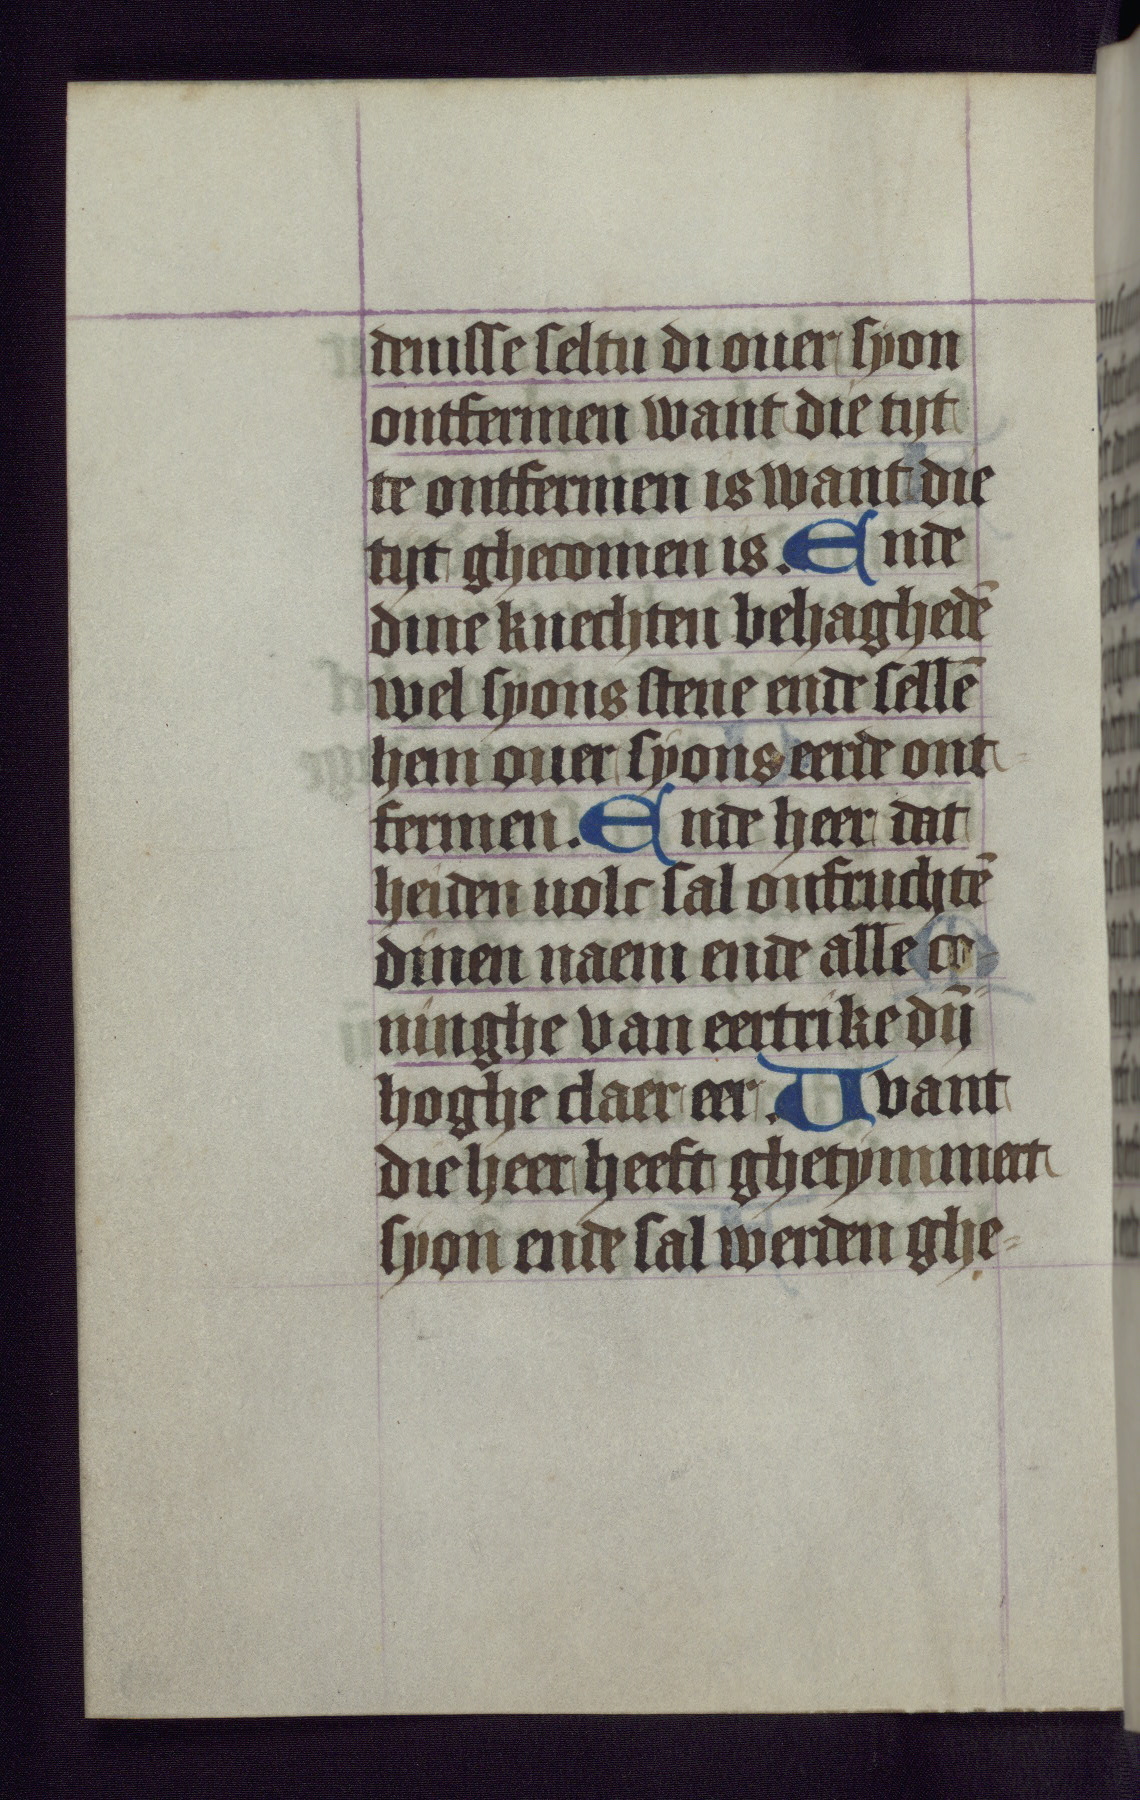 denisse seltu di ouer syon
ontfermen want die tijt
te ontfermen is want die
tijt ghecomen is. Ende
dine knechten behaghedē
wel syons stene ende sellē
hem ouer syons eerde ont-
fermen. Ende heer dat
heiden uolc sal onfruchtē
dinen naem ende alle co-
ninghe van eertrike dijn̄
hoghe claer eer. Uvant
die heer heeft ghetymmert
syon ende sal werden ghe-